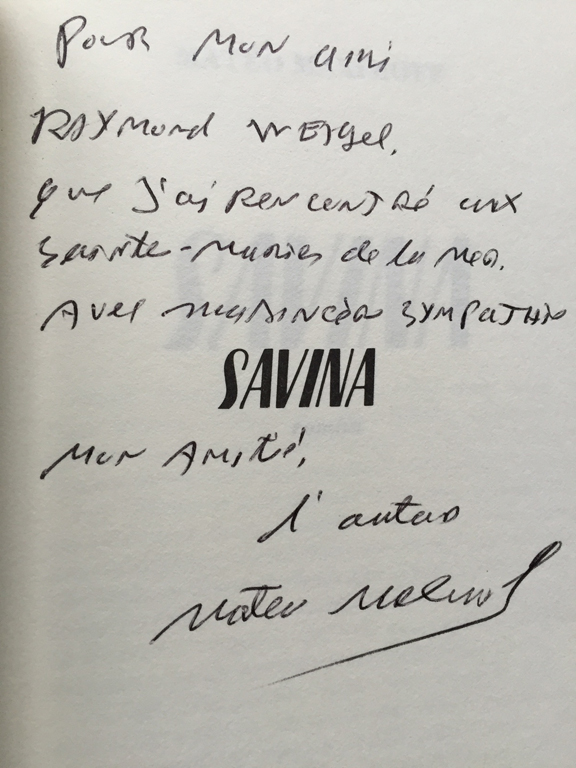 Pour mon ami
RAYmond WEIgel,
que J'ai RENCONTRÉ aux
Saintes-Maries de la Mer.
Avec ma sincère SYMPATHIE
SAVINA
Mon Amitié,
l'auteur
Mateo Maximoff